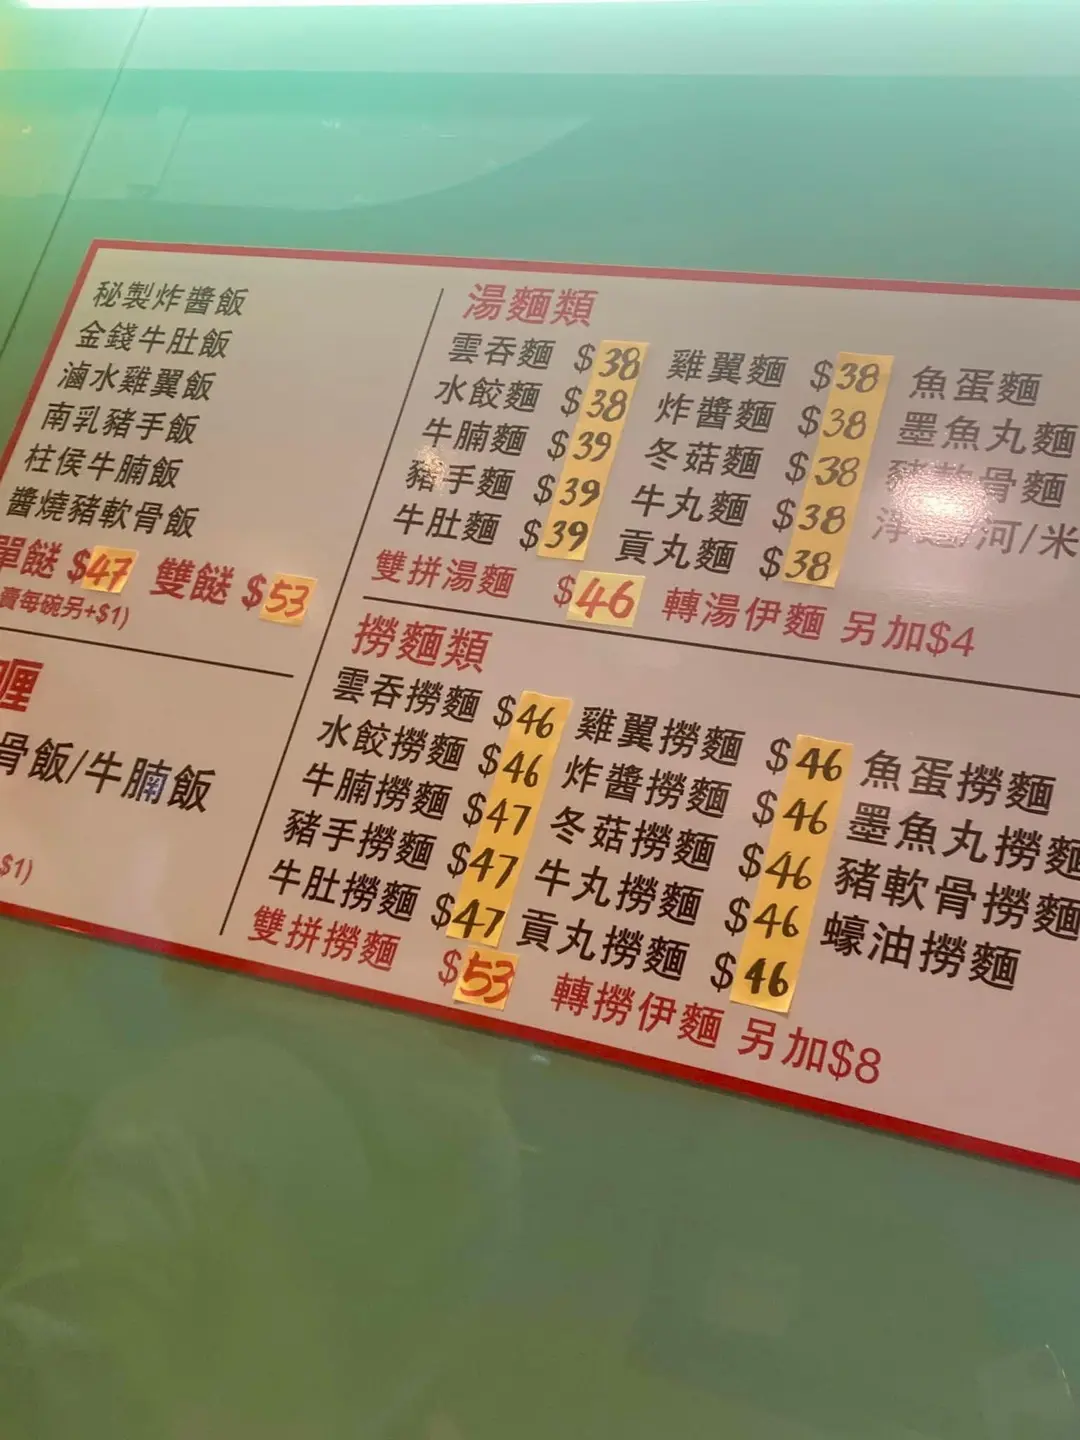 秘製炸醬飯
金錢牛肚飯
滷水雞翼飯
南乳豬手飯
柱侯牛腩飯
醬燒豬軟骨飯
單餸 $47 雙餸 $53
賣每碗另+$1)
喱
骨飯/牛腩飯
$1)
湯麵類
雲吞麵 $38 雞翼麵 $38 魚蛋麵
水餃麵 $38 炸醬麵 $38 墨魚丸麵
牛腩麵 $39 冬菇麵 $38 豬軟骨麵
豬手麵 $39 牛丸麵 $38 淨麵/河/米
牛肚麵 $39 貢丸麵 $38
雙拼湯麵 $46 轉湯伊麵 另加$4
撈麵類
雲吞撈麵 $46 雞翼撈麵 $46 魚蛋撈麵
水餃撈麵 $46 炸醬撈麵 $46 墨魚丸撈麵
牛腩撈麵 $47 冬菇撈麵 $46 豬軟骨撈麵
豬手撈麵 $47 牛丸撈麵 $46 蠔油撈麵
牛肚撈麵 $47 貢丸撈麵 $46
雙拼撈麵 $53 轉撈伊麵 另加$8